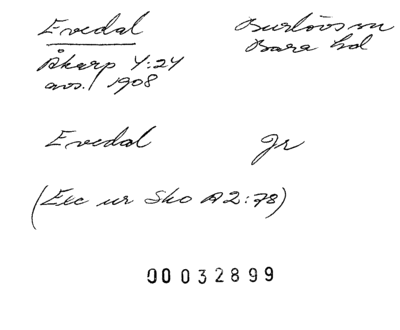 Evedal
Åkarp 4:24
avs. 1908
Burlövs sn
Bara hd
Evedal
Jr
(Exc ur Sko A2:78)
00032899